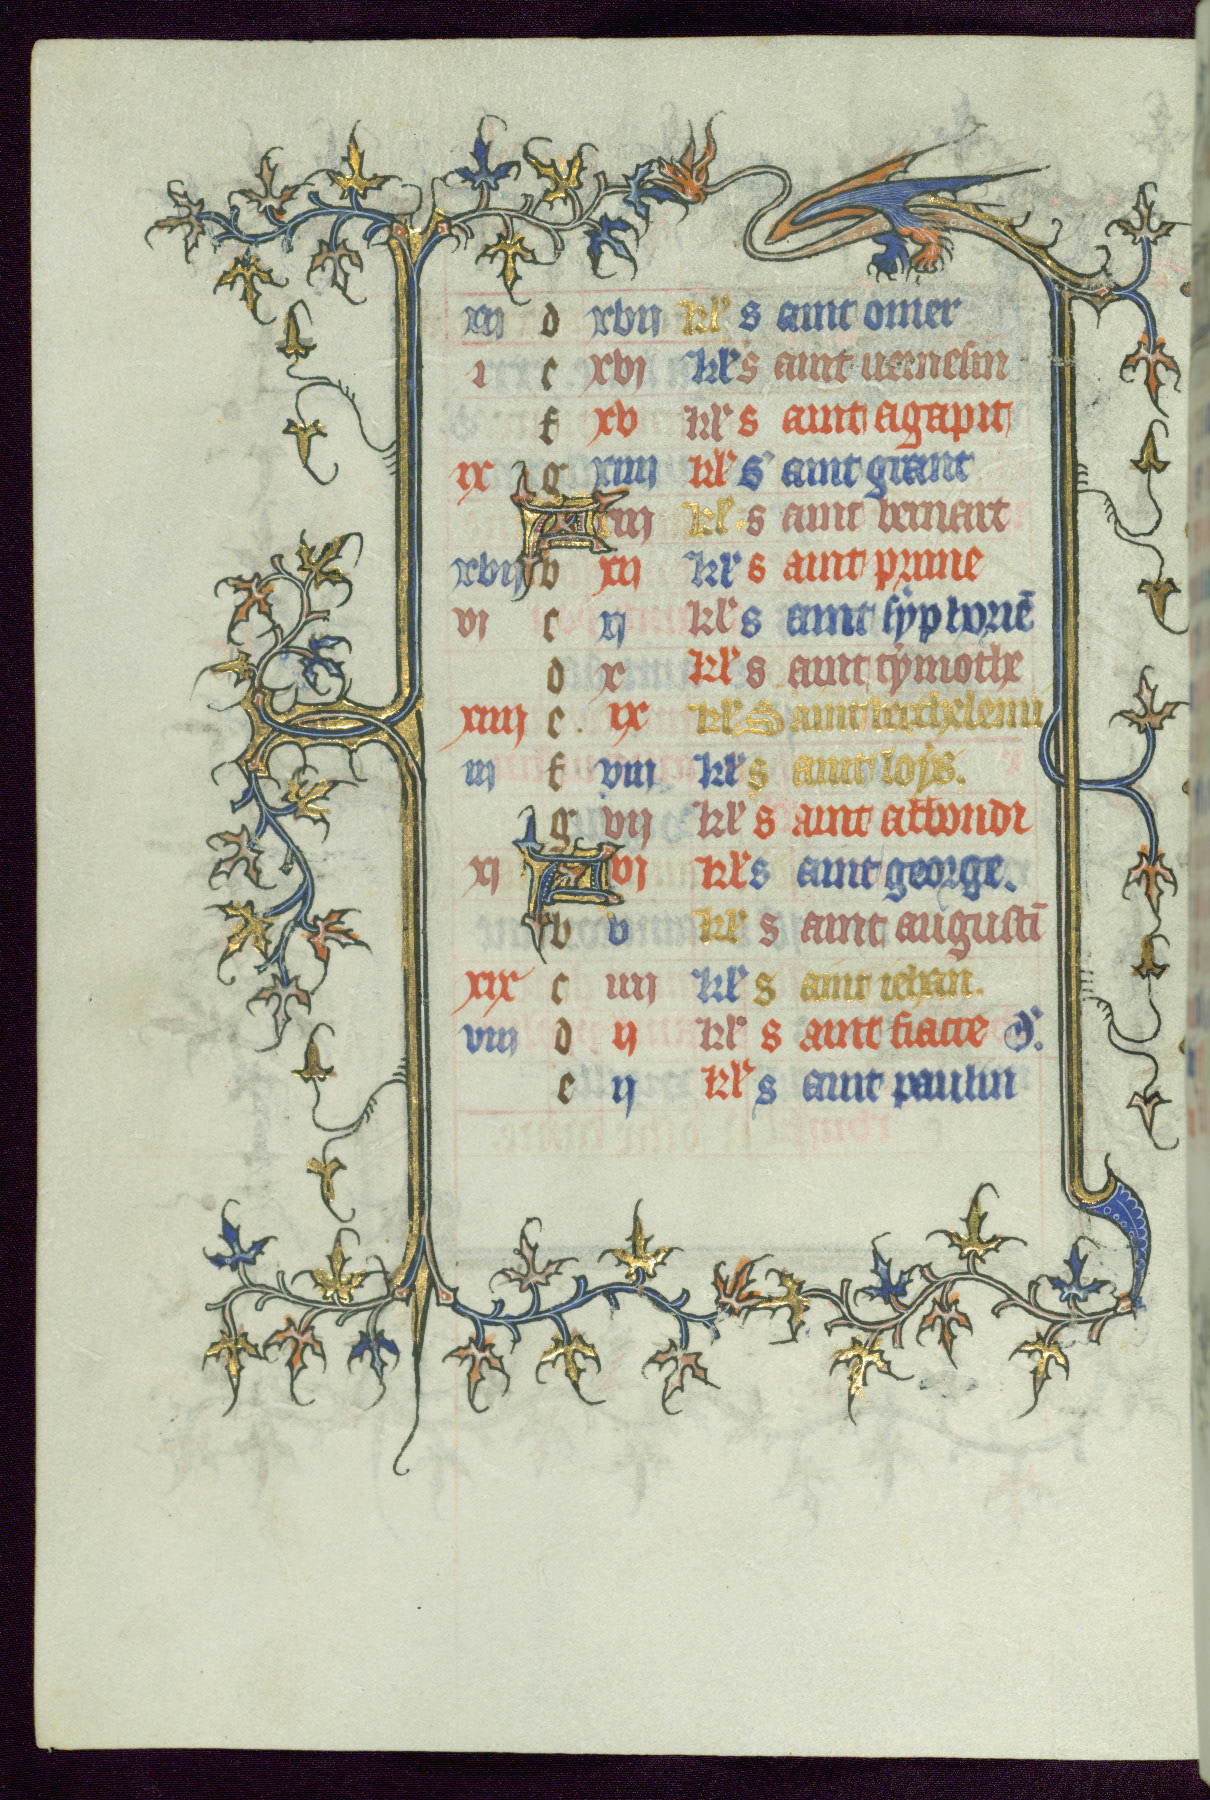 xii d xvii kl's saint omer
i e xvi kl's saint uernelin
f xv kl's saint agapit
ix g xiiii kl's saint grant
A xiii kl's saint bernart
xvii b xii kl's saint prime
vi c xi kl's saint siphoriē
d x kl's saint tymothe
xiiii e ix kl's Saint berthelemi
iii f viii kl's saint loys.
g vii kl's saint abbondi
xi A vi kl's saint george.
b v kl's saint augustī
xix c iiii kl's saint iehan.
viii d ii kl's saint fiacre
e ii kl's saint paulin